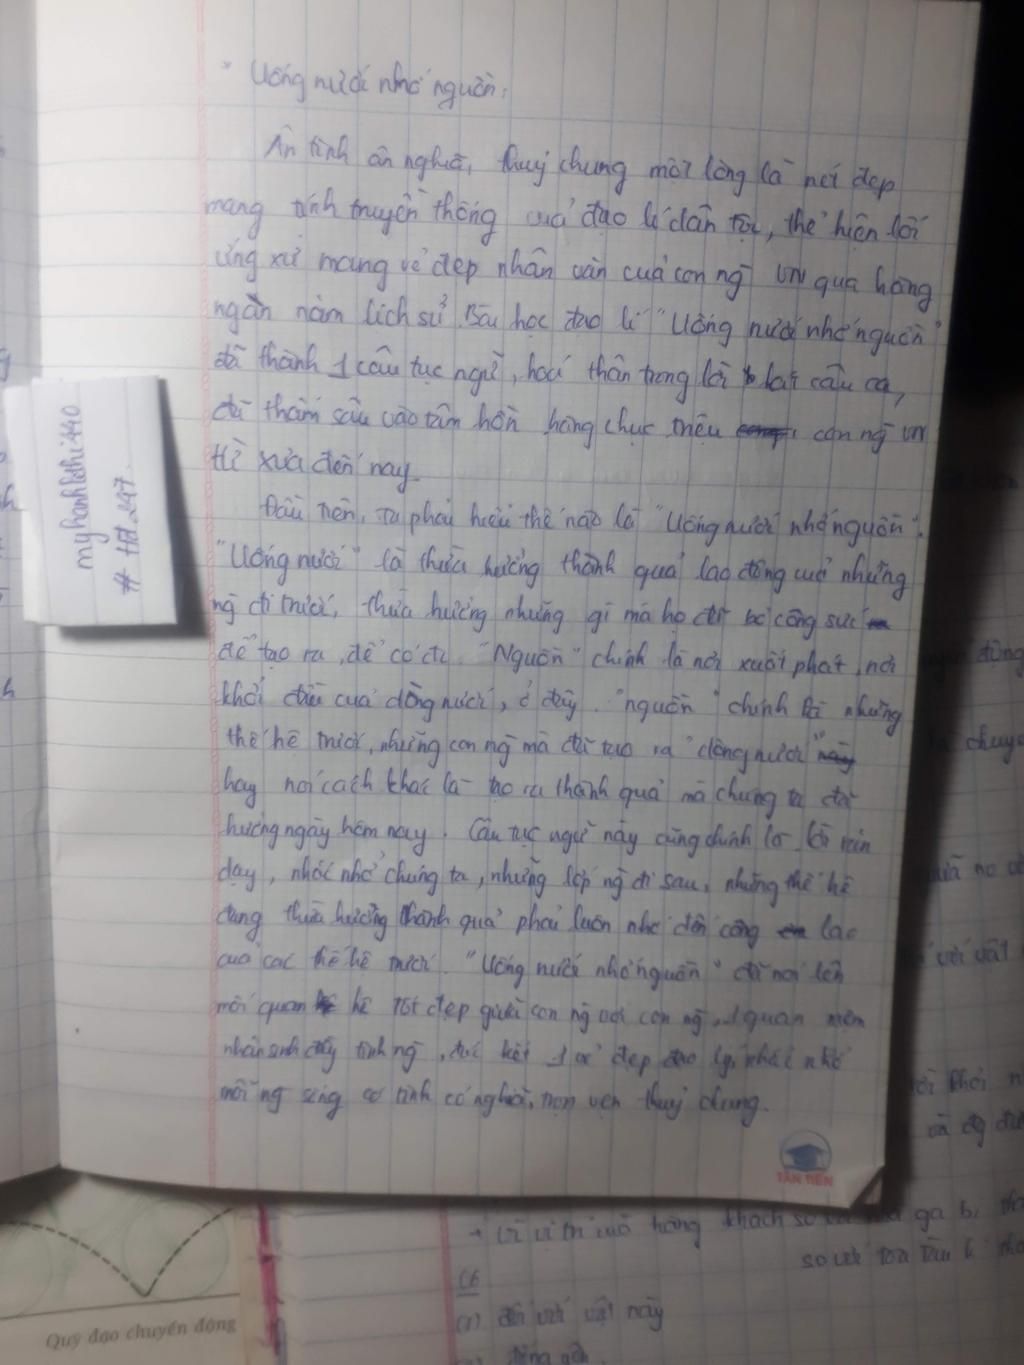 * Uống nước nhớ nguồn:
Ân tình ân nghĩa, thuỷ chung một lòng là nét đẹp
mang tính truyền thống của đạo lí dân tộc, thể hiện lối
ứng xử mang vẻ đẹp nhân văn của con ng VN qua hàng
ngàn năm lịch sử. Bài học đạo lí "Uống nước nhớ nguồn"
đã thành 1 câu tục ngữ, hoá thân trong lời hát câu ca,
đã thấm sâu vào tâm hồn hàng chục triệu con ng VN
từ xưa đến nay.
Đầu tiên, ta phải hiểu thế nào là "Uống nước nhớ nguồn".
"Uống nước" là thừa hưởng thành quả lao động của những
ng đi trước, thừa hưởng những gì mà họ đã bỏ công sức
để tạo ra, để có đc. "Nguồn" chính là nơi xuất phát, nơi
khởi đầu của dòng nước, ở đây "nguồn" chính là những
thế hệ trước, những con ng mà đã tạo ra "dòng nước"
hay nói cách khác là tạo ra thành quả mà chúng ta đã
hưởng ngày hôm nay. Câu tục ngữ này cũng chính là lời răn
dạy, nhắc nhở chúng ta, những lớp ng đi sau, những thế hệ
đang thừa hưởng thành quả phải luôn nhớ đến công lao
của các thế hệ trước. "Uống nước nhớ nguồn" đã nói lên
mối quan hệ tốt đẹp giữa con ng với con ng, 1 quan niệm
nhân sinh đầy tình ng, đúc kết 1 đẹp đạo lý, nhắc nhở
mỗi ng sống có tình có nghĩa, trọn vẹn thuỷ chung.
myhanhlethi440
# Hd247
TÂN TIẾN
Quỹ đạo chuyển động
C6
đối với vật này